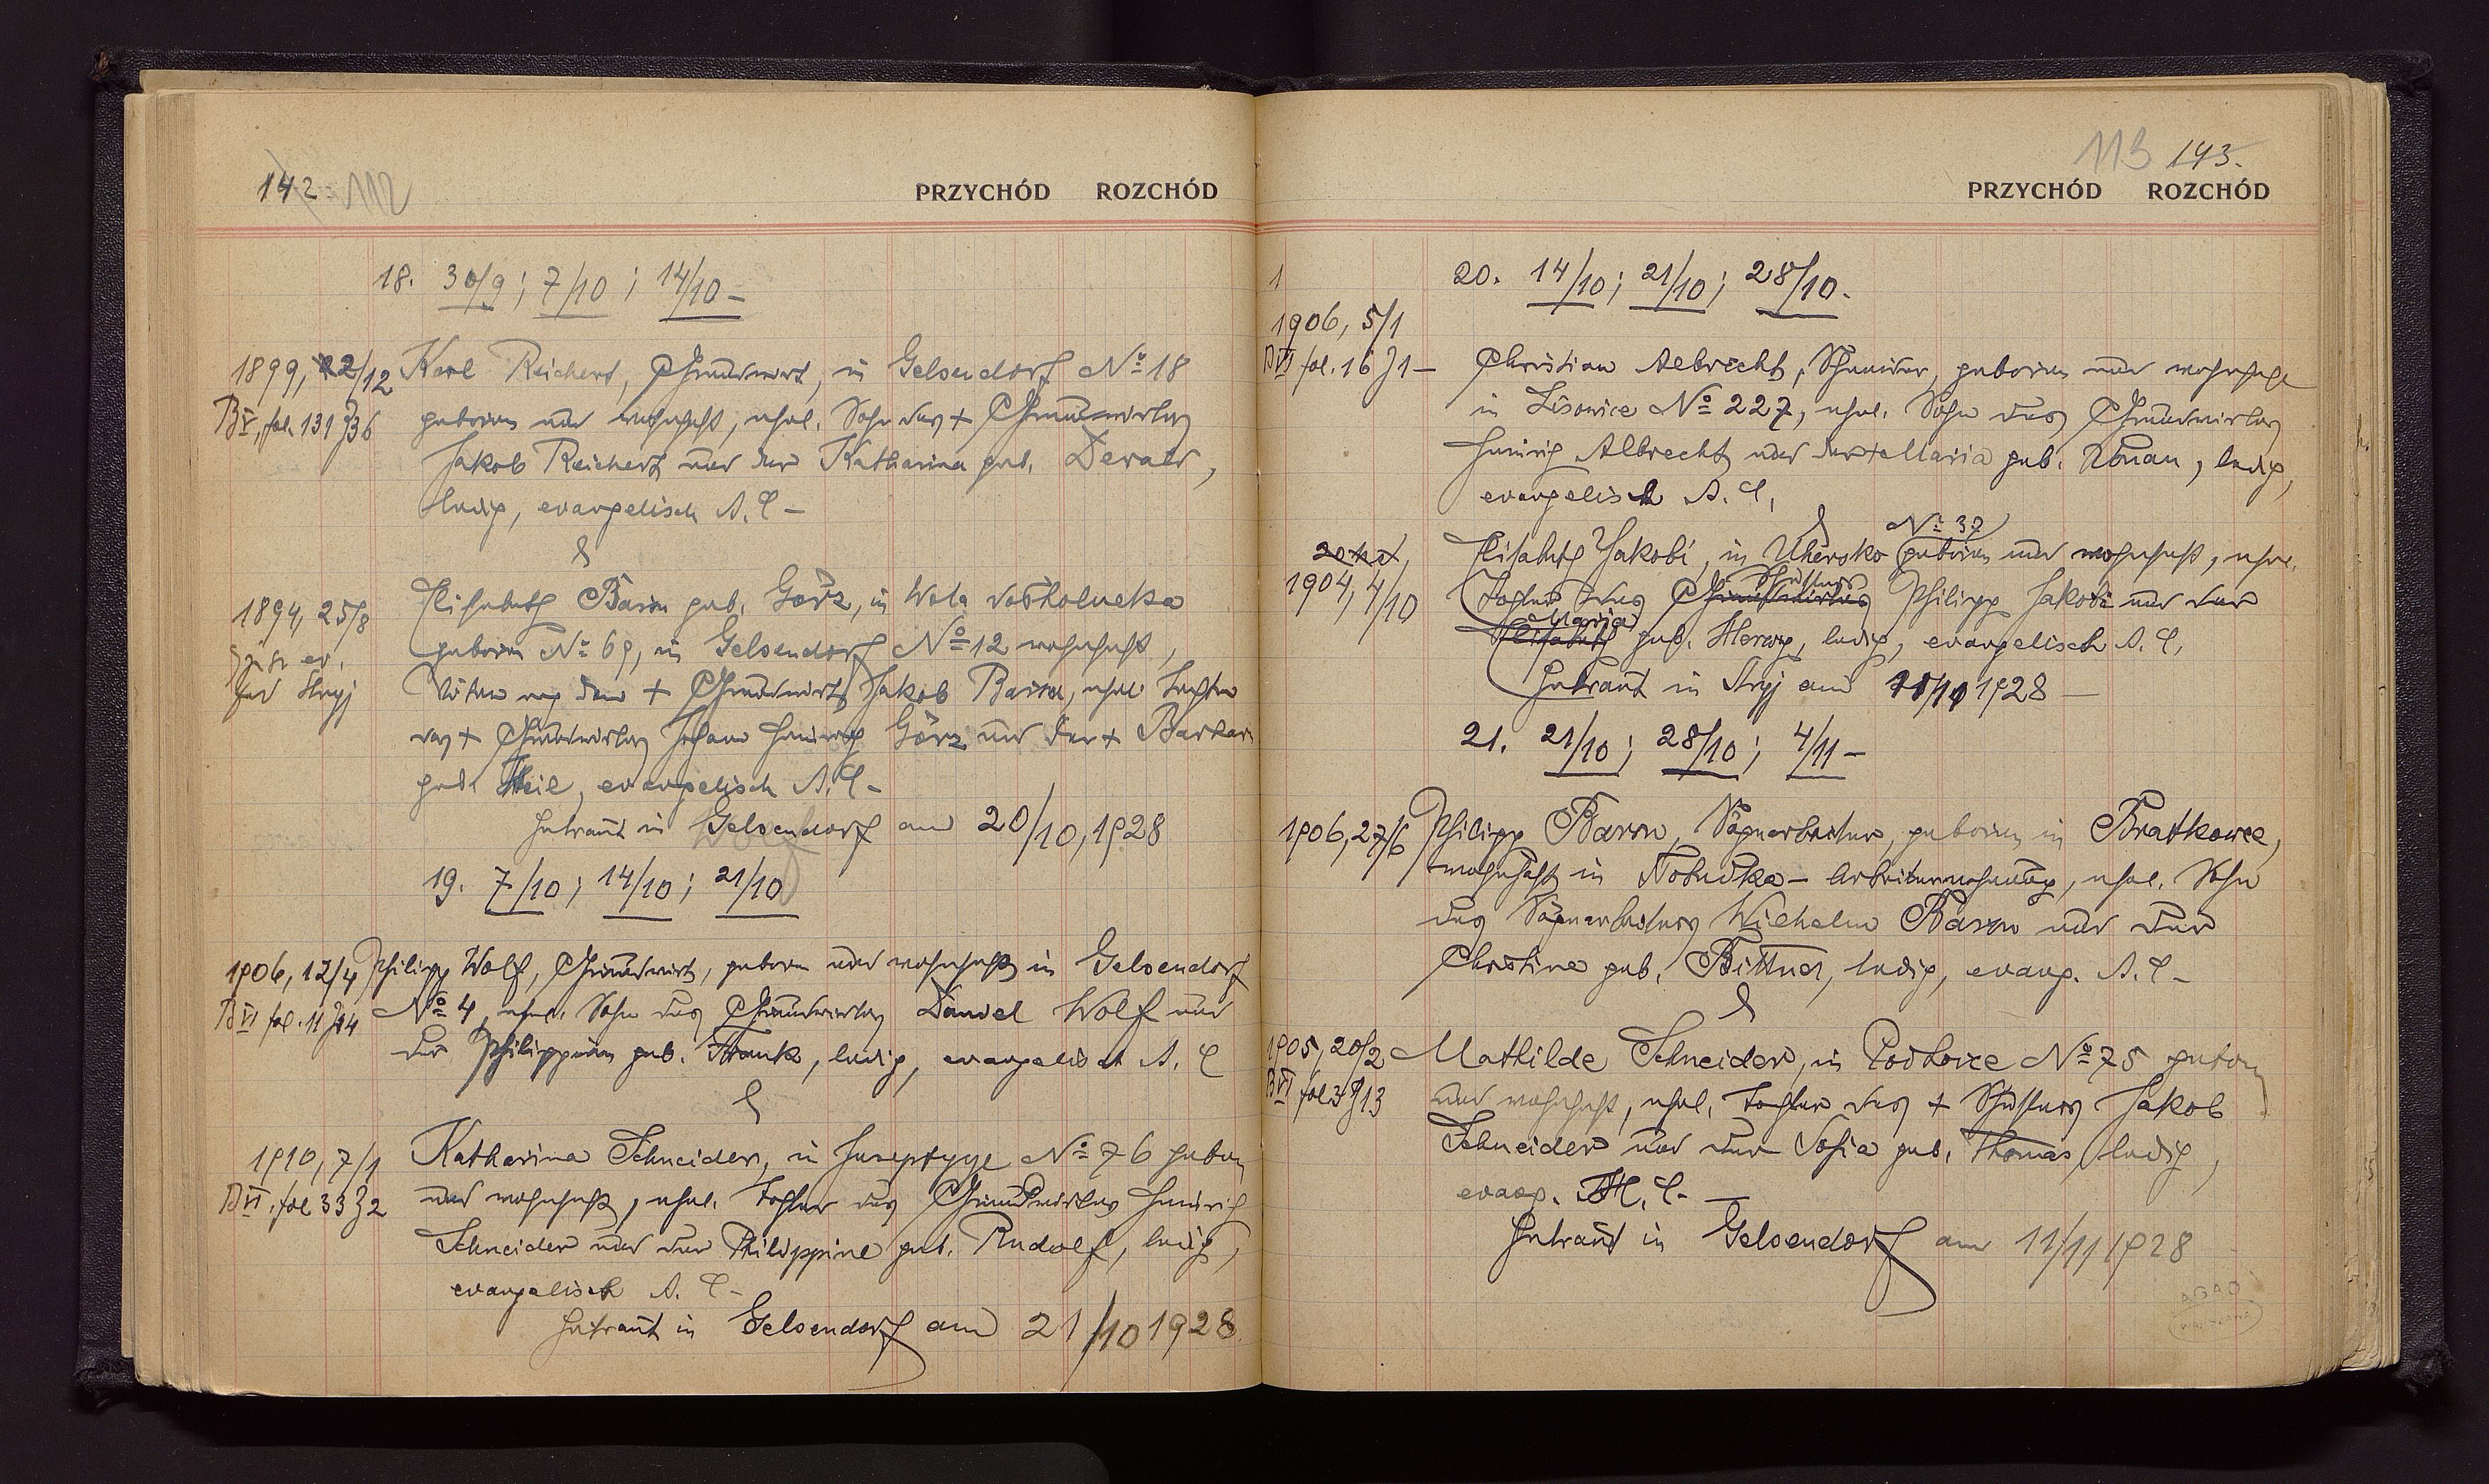 142 112
PRZYCHÓD ROZCHÓD
18. 30/9; 7/10; 14/10 –
1899, 22/12 Karl Reichert, Grundwirt, in Gelsendorf No 18
B V, fol. 131 Z 36 geboren und wohnhaft, ehel. Sohn des + Grundwirtes
Jakob Reichert und der Katharina geb. Derald,
ledig, evangelisch A. C –
&
1894, 25/8 Elisabeth Baron geb. Görz, in Wola
geboren No 69, in Gelsendorf No 12 wohnhaft,
für Stryj Witwe nach dem + Grundwirt Jakob Baron, ehel. Tochter
des + Grundwirtes Johann Heinrich Görz und der + Barbara
geb. Theil, evangelisch A. C –
Getraut in Gelsendorf am 20/10, 1928
19. 7/10; 14/10; 21/10
1906, 12/4 Philipp Wolf, Grundwirt, geboren und wohnhaft in Gelsendorf
B VI fol. 11 Z 14 No 4, ehel. Sohn des Grundwirtes Daniel Wolf und
der Philippine geb. Frank, ledig, evangelisch A. C
&
1910, 7/1 Katharina Schneider, in No 76 geboren
B VI. fol 33 Z 2 und wohnhaft, ehel. Tochter des Grundwirtes Heinrich
Schneider und der Philippine geb. Rudolf, ledig,
evangelisch A. C –
Getraut in Gelsendorf am 21/10 1928
113 143.
PRZYCHÓD ROZCHÓD
20. 14/10; 21/10; 28/10.
1906, 5/1
B VI fol. 16 Z 1 – Christian Albrecht, geboren und wohnhaft
in Lisowice No 227, ehel. Sohn des Grundwirtes
Heinrich Albrecht und der + Maria geb. Konan, ledig,
evangelisch A. C,
&
No 37
Elisabeth Jakobi, in Uhersko geboren und wohnhaft, ehel.
1904, 4/10 Tochter des Grundwirtes Philipp Jakobi und der
Maria
Elisabeth geb. Herwig, ledig, evangelisch A. C,
Getraut in Stryj am 1928 –
21. 21/10; 28/10; 4/11 –
1906, 27/6 Philipp Baron, Sägearbeiter, geboren in Bratkowce,
wohnhaft in – Arbeiterwohnung, ehel. Sohn
des Sägearbeiters Wilhelm Baron und der
Christine geb. Bittner, ledig, evang. A. C –
&
1905, 20/2 Mathilde Schneider, in Podhorce No 75 geboren
B VI fol. 3 Z 13 und wohnhaft, ehel. Tochter des + Jakob
Schneider und der Sofia geb. Thomas, ledig,
evang. H. C. –
Getraut in Gelsendorf am 11/11 1928
AGAD
WARSZAWA